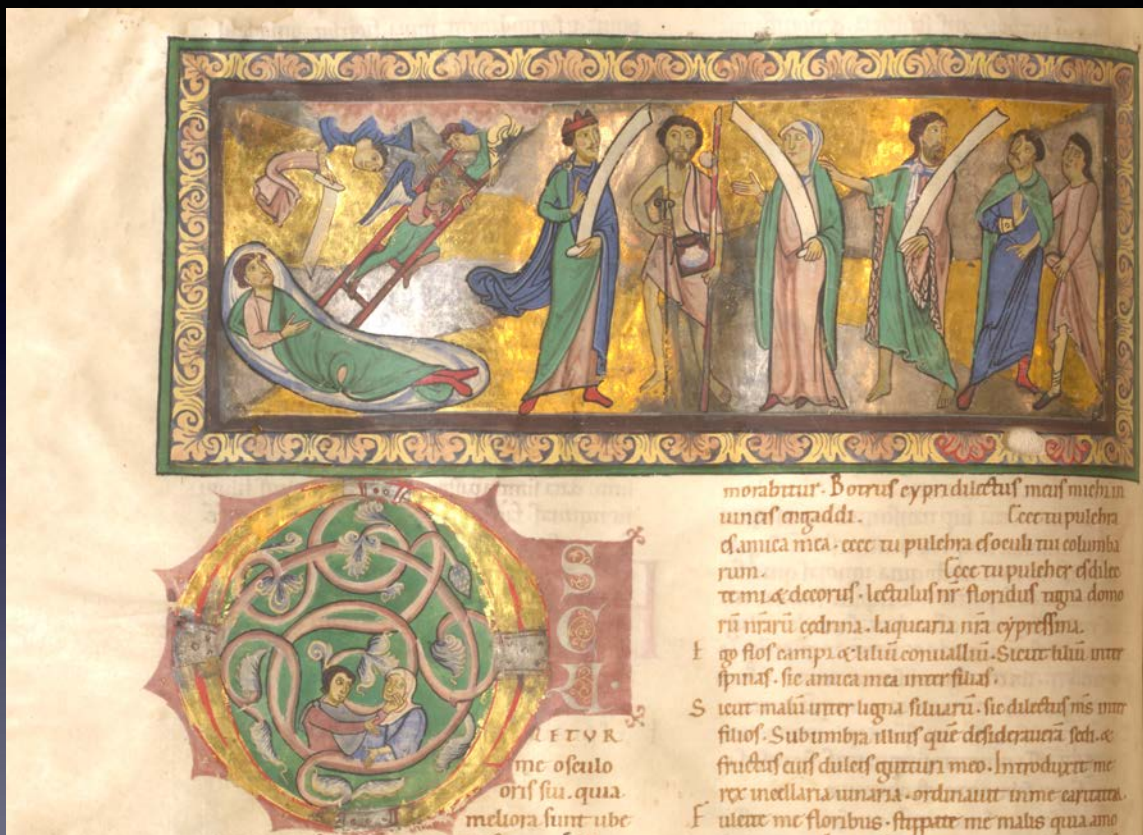 O
S
C
V.
LETVR
me osculo
oris sui. quia
meliora sunt ube
morabitur. Botrus cypri dilectus meus michi in
uineis engaddi. Ecce tu pulchra
es amica mea. ecce tu pulchra es oculi tui columba
rum. Ecce tu pulcher es dilec
te mi & decorus. lectulus nr̄ floridus tigna domo
rū nr̄arū cedrina. laquearia nr̄a cypressina.
Ego flos campi & liliū conualliū. Sicut liliū inter
spinas. sic amica mea inter filias.
Sicut malū inter ligna siluarū. sic dilectus m̄s inter
filios. Sub umbra illius quē desideraueā sedi. &
fructus eius dulcis gutturi meo. Introduxit me
rex in cellaria uinaria. ordinauit in me caritatē.
Fulcite me floribus. stippate me malis quia amo